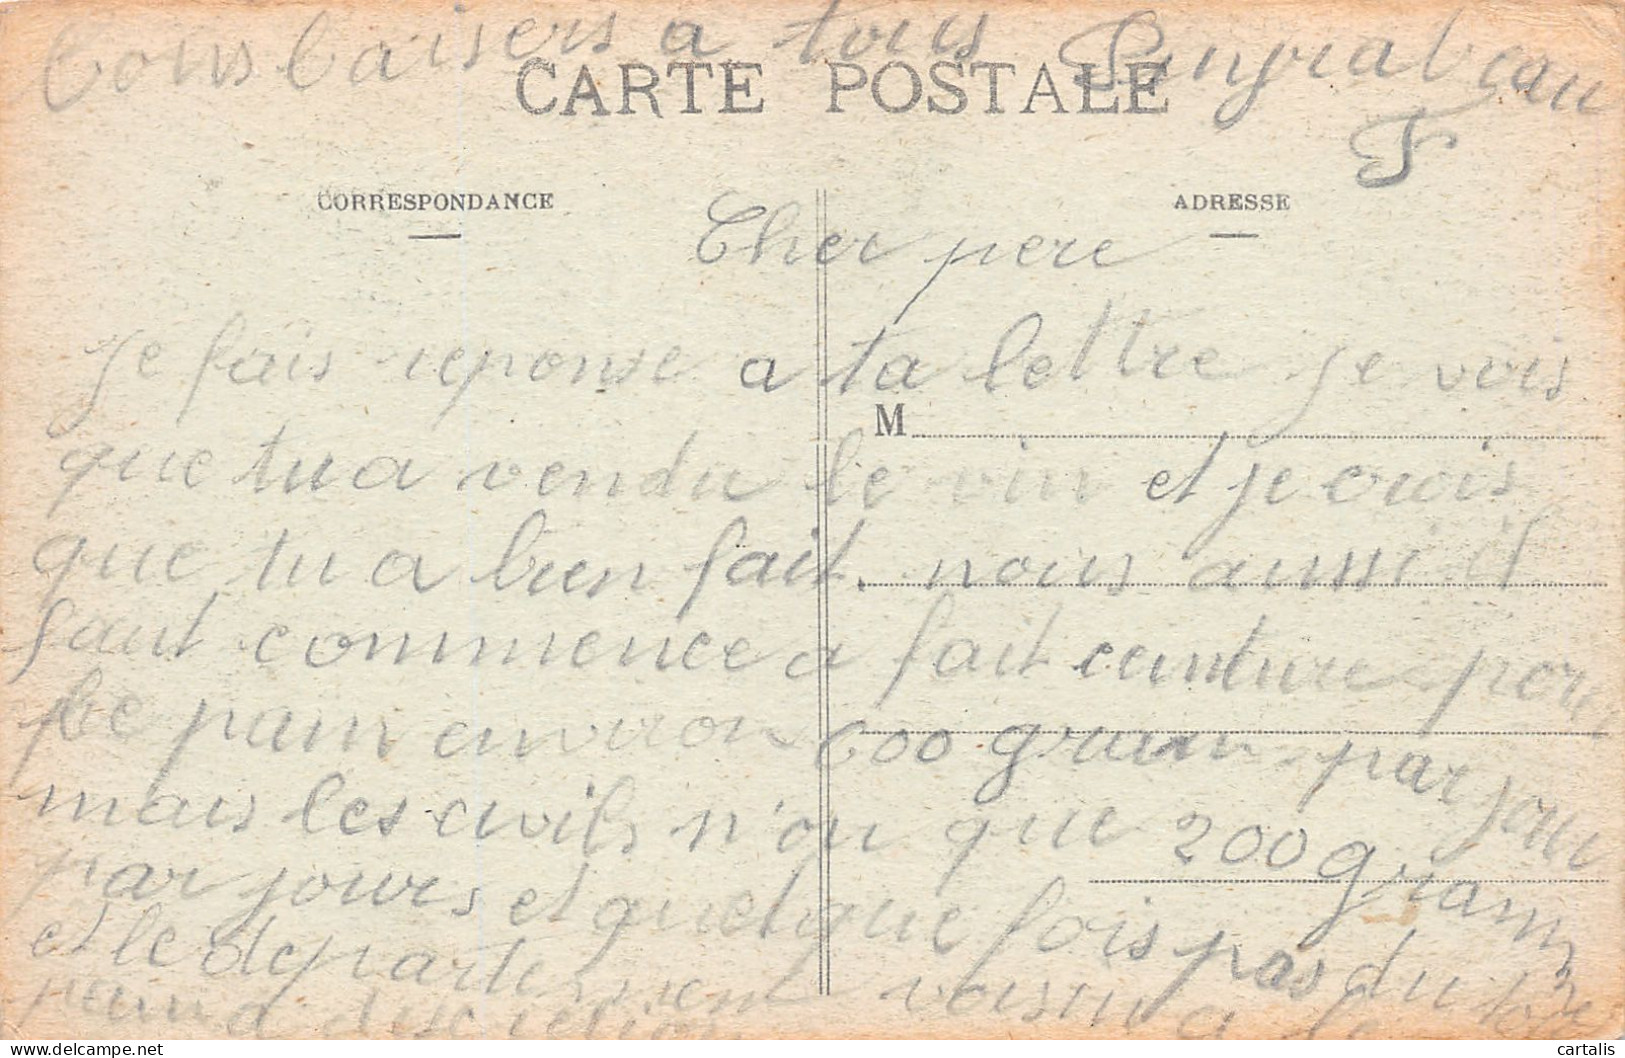 Bons baisers a tous
CARTE POSTALE
CORRESPONDANCE
ADRESSE
Cher pere
je fais reponse a ta lettre je vois
M
que tu a vendu le vin et je crois
que tu a bien fait. nous aussi il
faut commence a fait ceinture pour
le pain environ 600 gram par jour
mais les civils n'on que 200 gram
par jours et quelque fois pas du tout
et le departement voisin a le
pain a discretion
cartalis